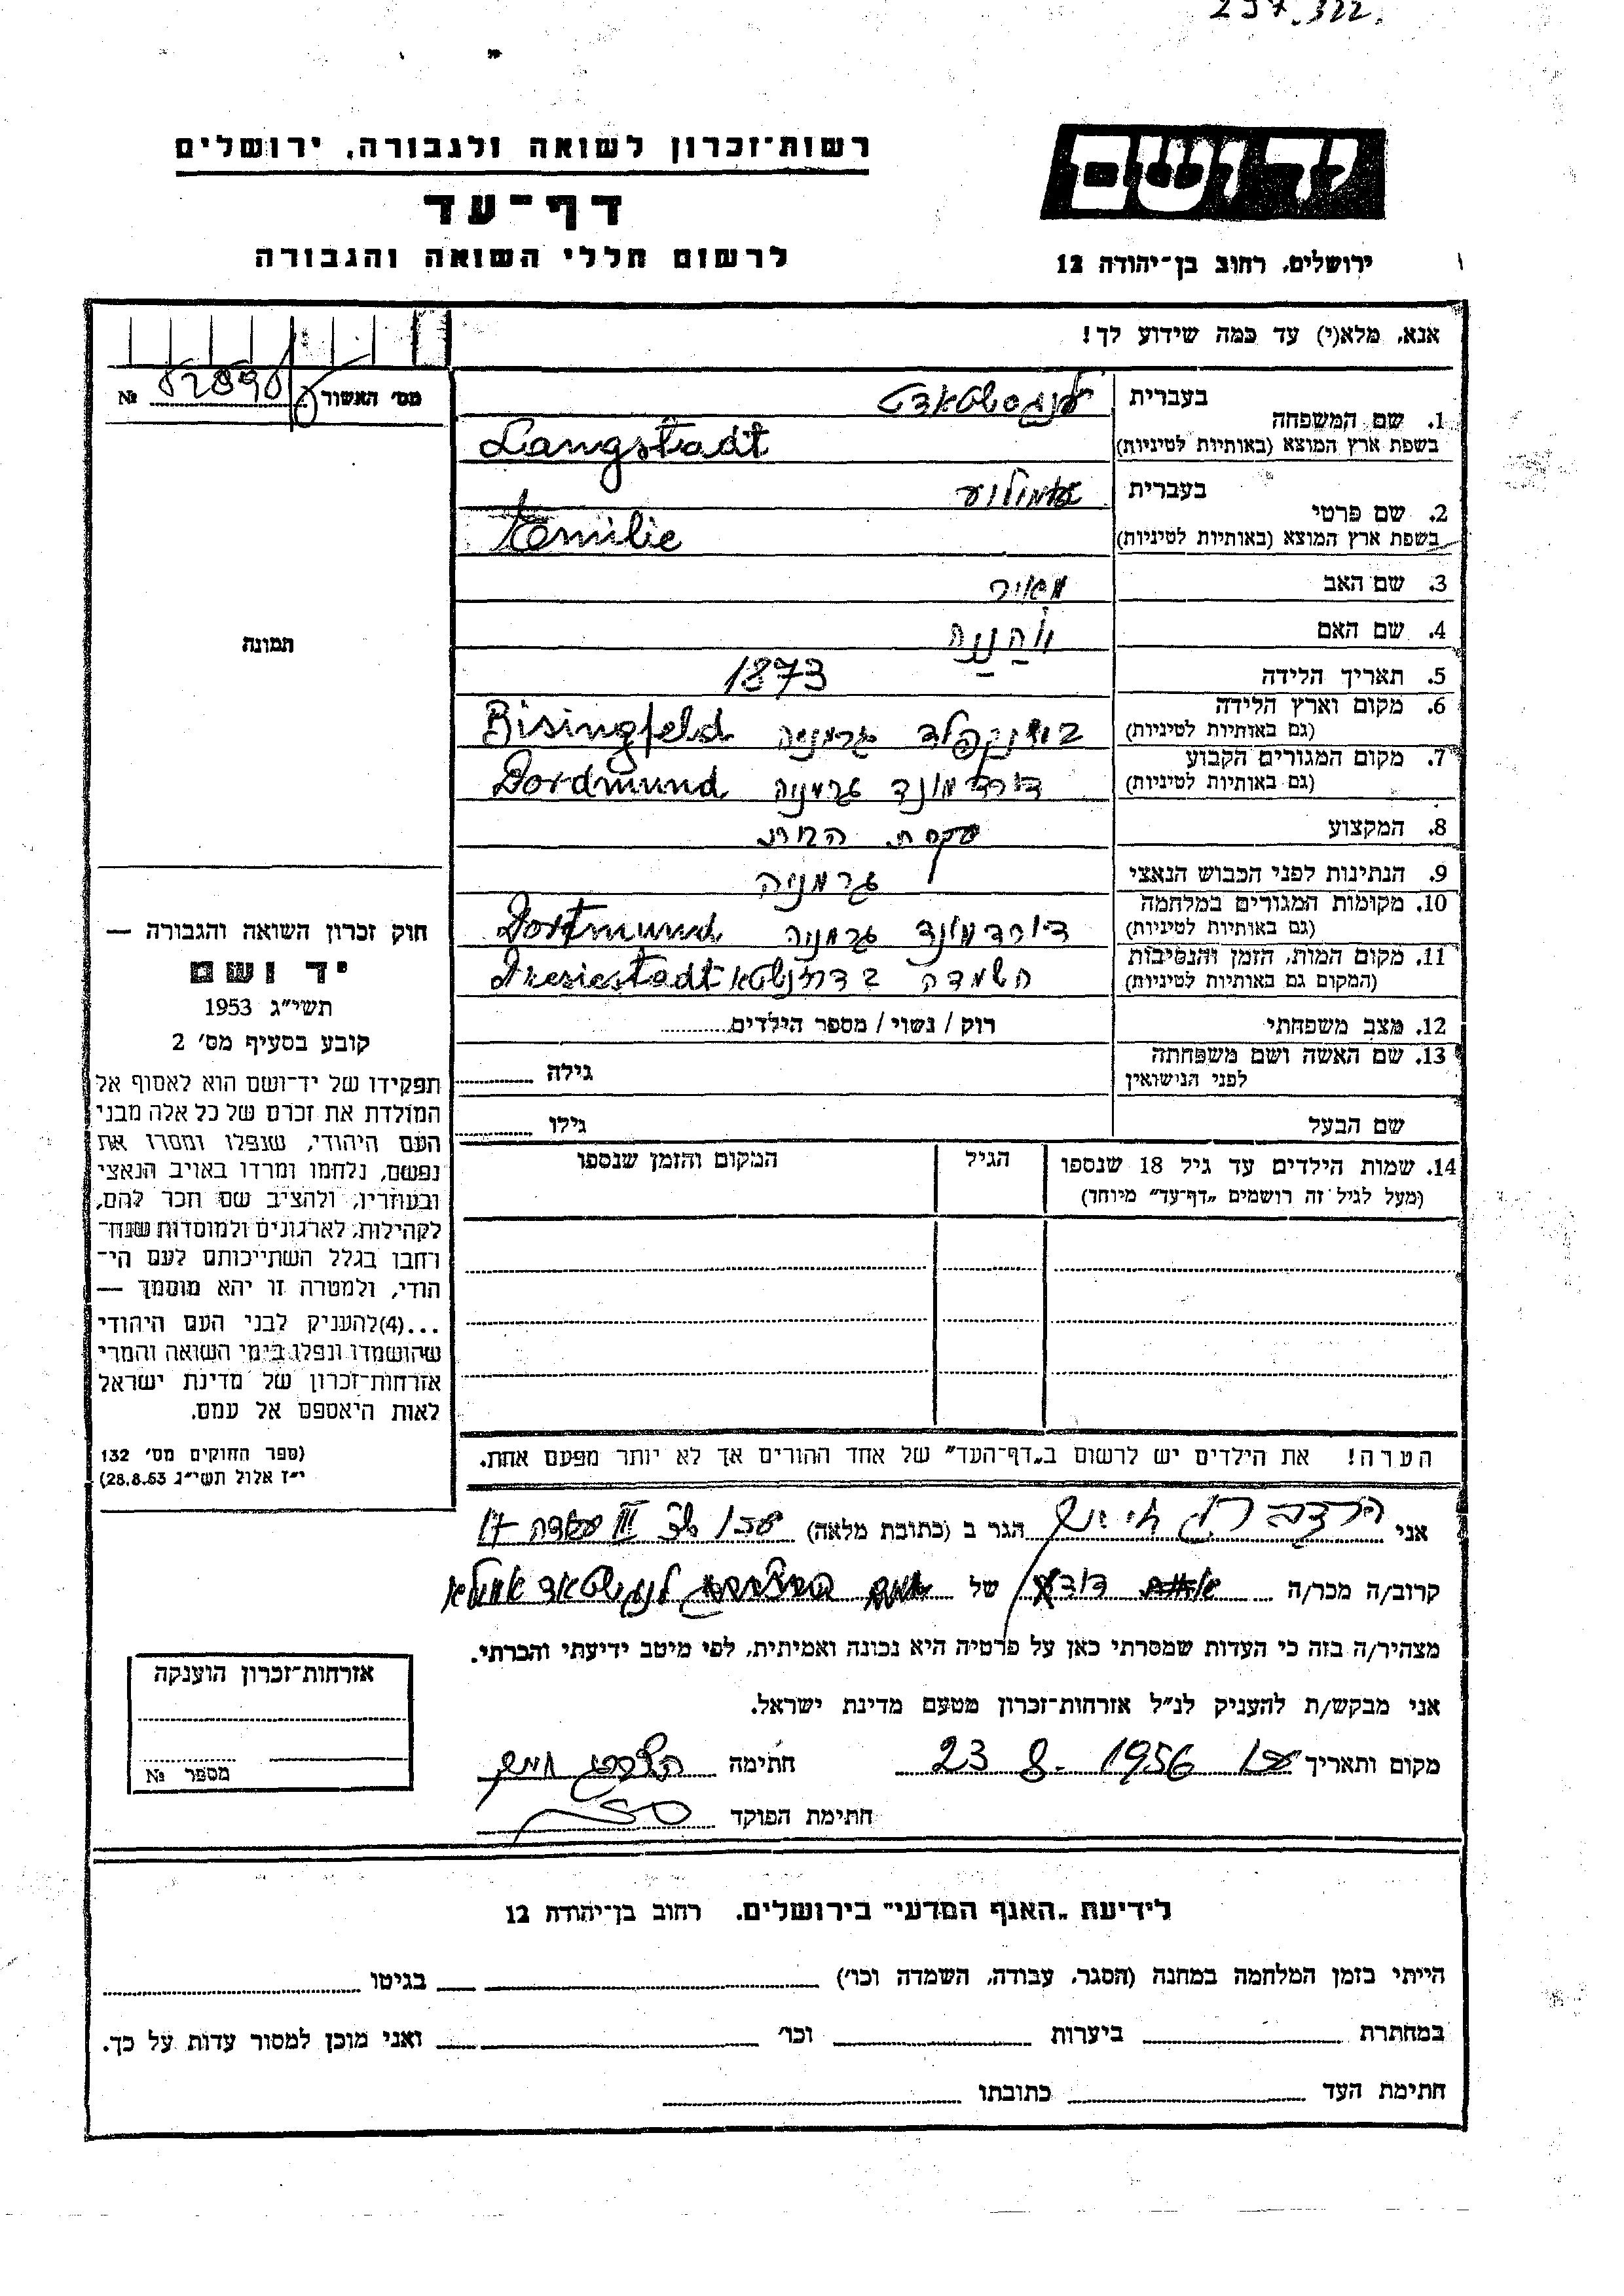 297.322.
רשות־זכרון לשואה ולגבורה, ירושלים
דף־עד
לרשום חללי השואה והגבורה
יד ושם
ירושלים, רחוב בן־יהודה 12
אנא, מלא(י) עד כמה שידוע לך!
מס׳ האשור № 82898
תמונה
1. שם המשפחה בעברית לנגסטאדט
בשפת ארץ המוצא (באותיות לטיניות) Langstadt
2. שם פרטי בעברית
בשפת ארץ המוצא (באותיות לטיניות) Emilie
3. שם האב מאיר
4. שם האם
5. תאריך הלידה 1873
6. מקום וארץ הלידה גרמניה Bisingfeld
(גם באותיות לטיניות)
7. מקום המגורים הקבוע דורדמונד גרמניה Dordmund
(גם באותיות לטיניות)
8. המקצוע עקרת הבית
9. הנתינות לפני הכבוש הנאצי גרמניה
10. מקומות המגורים במלחמה דורדמונד גרמניה Dortmund
(גם באותיות לטיניות)
11. מקום המות, הזמן והנסיבות השמדה Dresiestadt
(המקום גם באותיות לטיניות)
12. מצב משפחתי רוק / נשוי / מספר הילדים
13. שם האשה ושם משפחתה
לפני הנישואין גילה
שם הבעל גילו
14. שמות הילדים עד גיל 18 שנספו הגיל המקום והזמן שנספו
(מעל לגיל זה רושמים „דף־עד״ מיוחד)
הערה! את הילדים יש לרשום ב„דף־העד״ של אחד ההורים אך לא יותר מפעם אחת.
חוק זכרון השואה והגבורה —
יד ושם
תשי״ג 1953
קובע בסעיף מס׳ 2
תפקידו של יד־ושם הוא לאסוף אל
המולדת את זכרם של כל אלה מבני
העם היהודי, שנפלו ומסרו את
נפשם, נלחמו ומרדו באויב הנאצי
ובעוזריו, ולהציב שם וזכר להם,
לקהילות, לארגונים ולמוסדות שנח־
רחבו בגלל השתייכותם לעם הי־
הודי, ולמטרה זו יהא מוסמך —
...(4)להעניק לבני העם היהודי
שהושמדו ונפלו בימי השואה והמרי
אזרחות־זכרון של מדינת ישראל
לאות היאספם אל עמם.
(ספר החוקים מס׳ 132
י״ז אלול תשי״ג 28.8.53)
אני הגר ב (כתובת מלאה) עכו III 17
קרוב/ה מכר/ה של לנגשטאד
מצהיר/ה בזה כי העדות שמסרתי כאן על פרטיה היא נכונה ואמיתית, לפי מיטב ידיעתי והכרתי.
אני מבקש/ת להעניק לנ״ל אזרחות־זכרון מטעם מדינת ישראל.
מקום ותאריך עכו 23 8. 1956 חתימה
חתימת הפוקד
אזרחות־זכרון הוענקה
מספר №
לידיעת „האגף המדעי״ בירושלים. רחוב בן־יהודה 12
הייתי בזמן המלחמה במחנה (הסגר, עבודה, השמדה וכו׳) בגיטו
במחתרת ביערות וכו׳ ואני מוכן למסור עדות על כך.
חתימת העד כתובתו